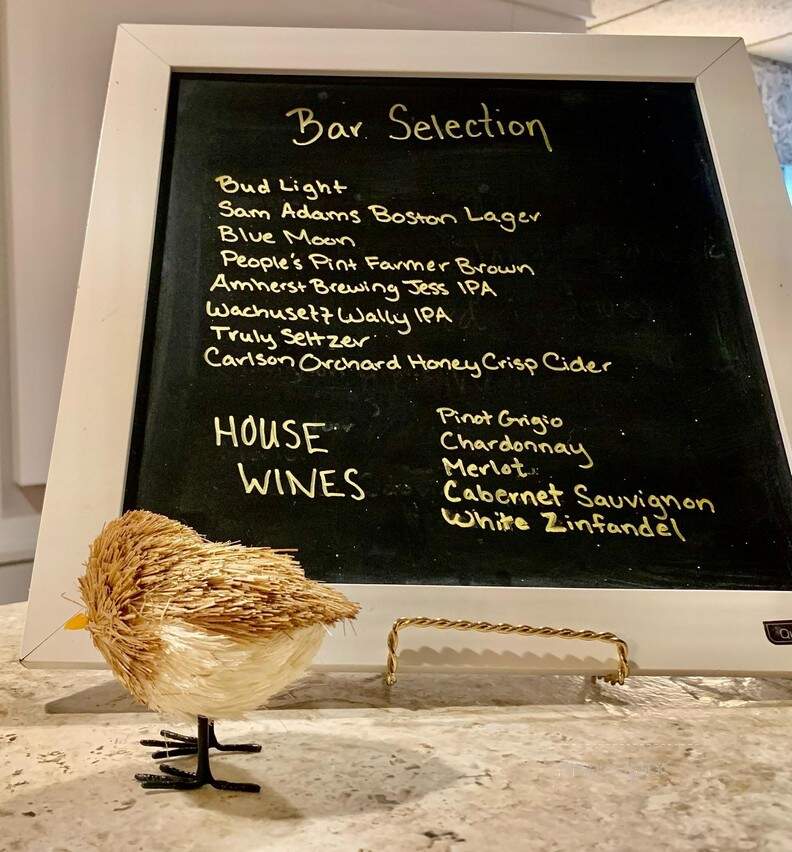 Bar Selection
Bud Light
Sam Adams Boston Lager
Blue Moon
People's Pint Farmer Brown
Amherst Brewing Jess IPA
Wachusett Wally IPA
Truly Seltzer
Carlson Orchard Honey Crisp Cider
HOUSE
WINES
Pinot Grigio
Chardonnay
Merlot
Cabernet Sauvignon
White Zinfandel